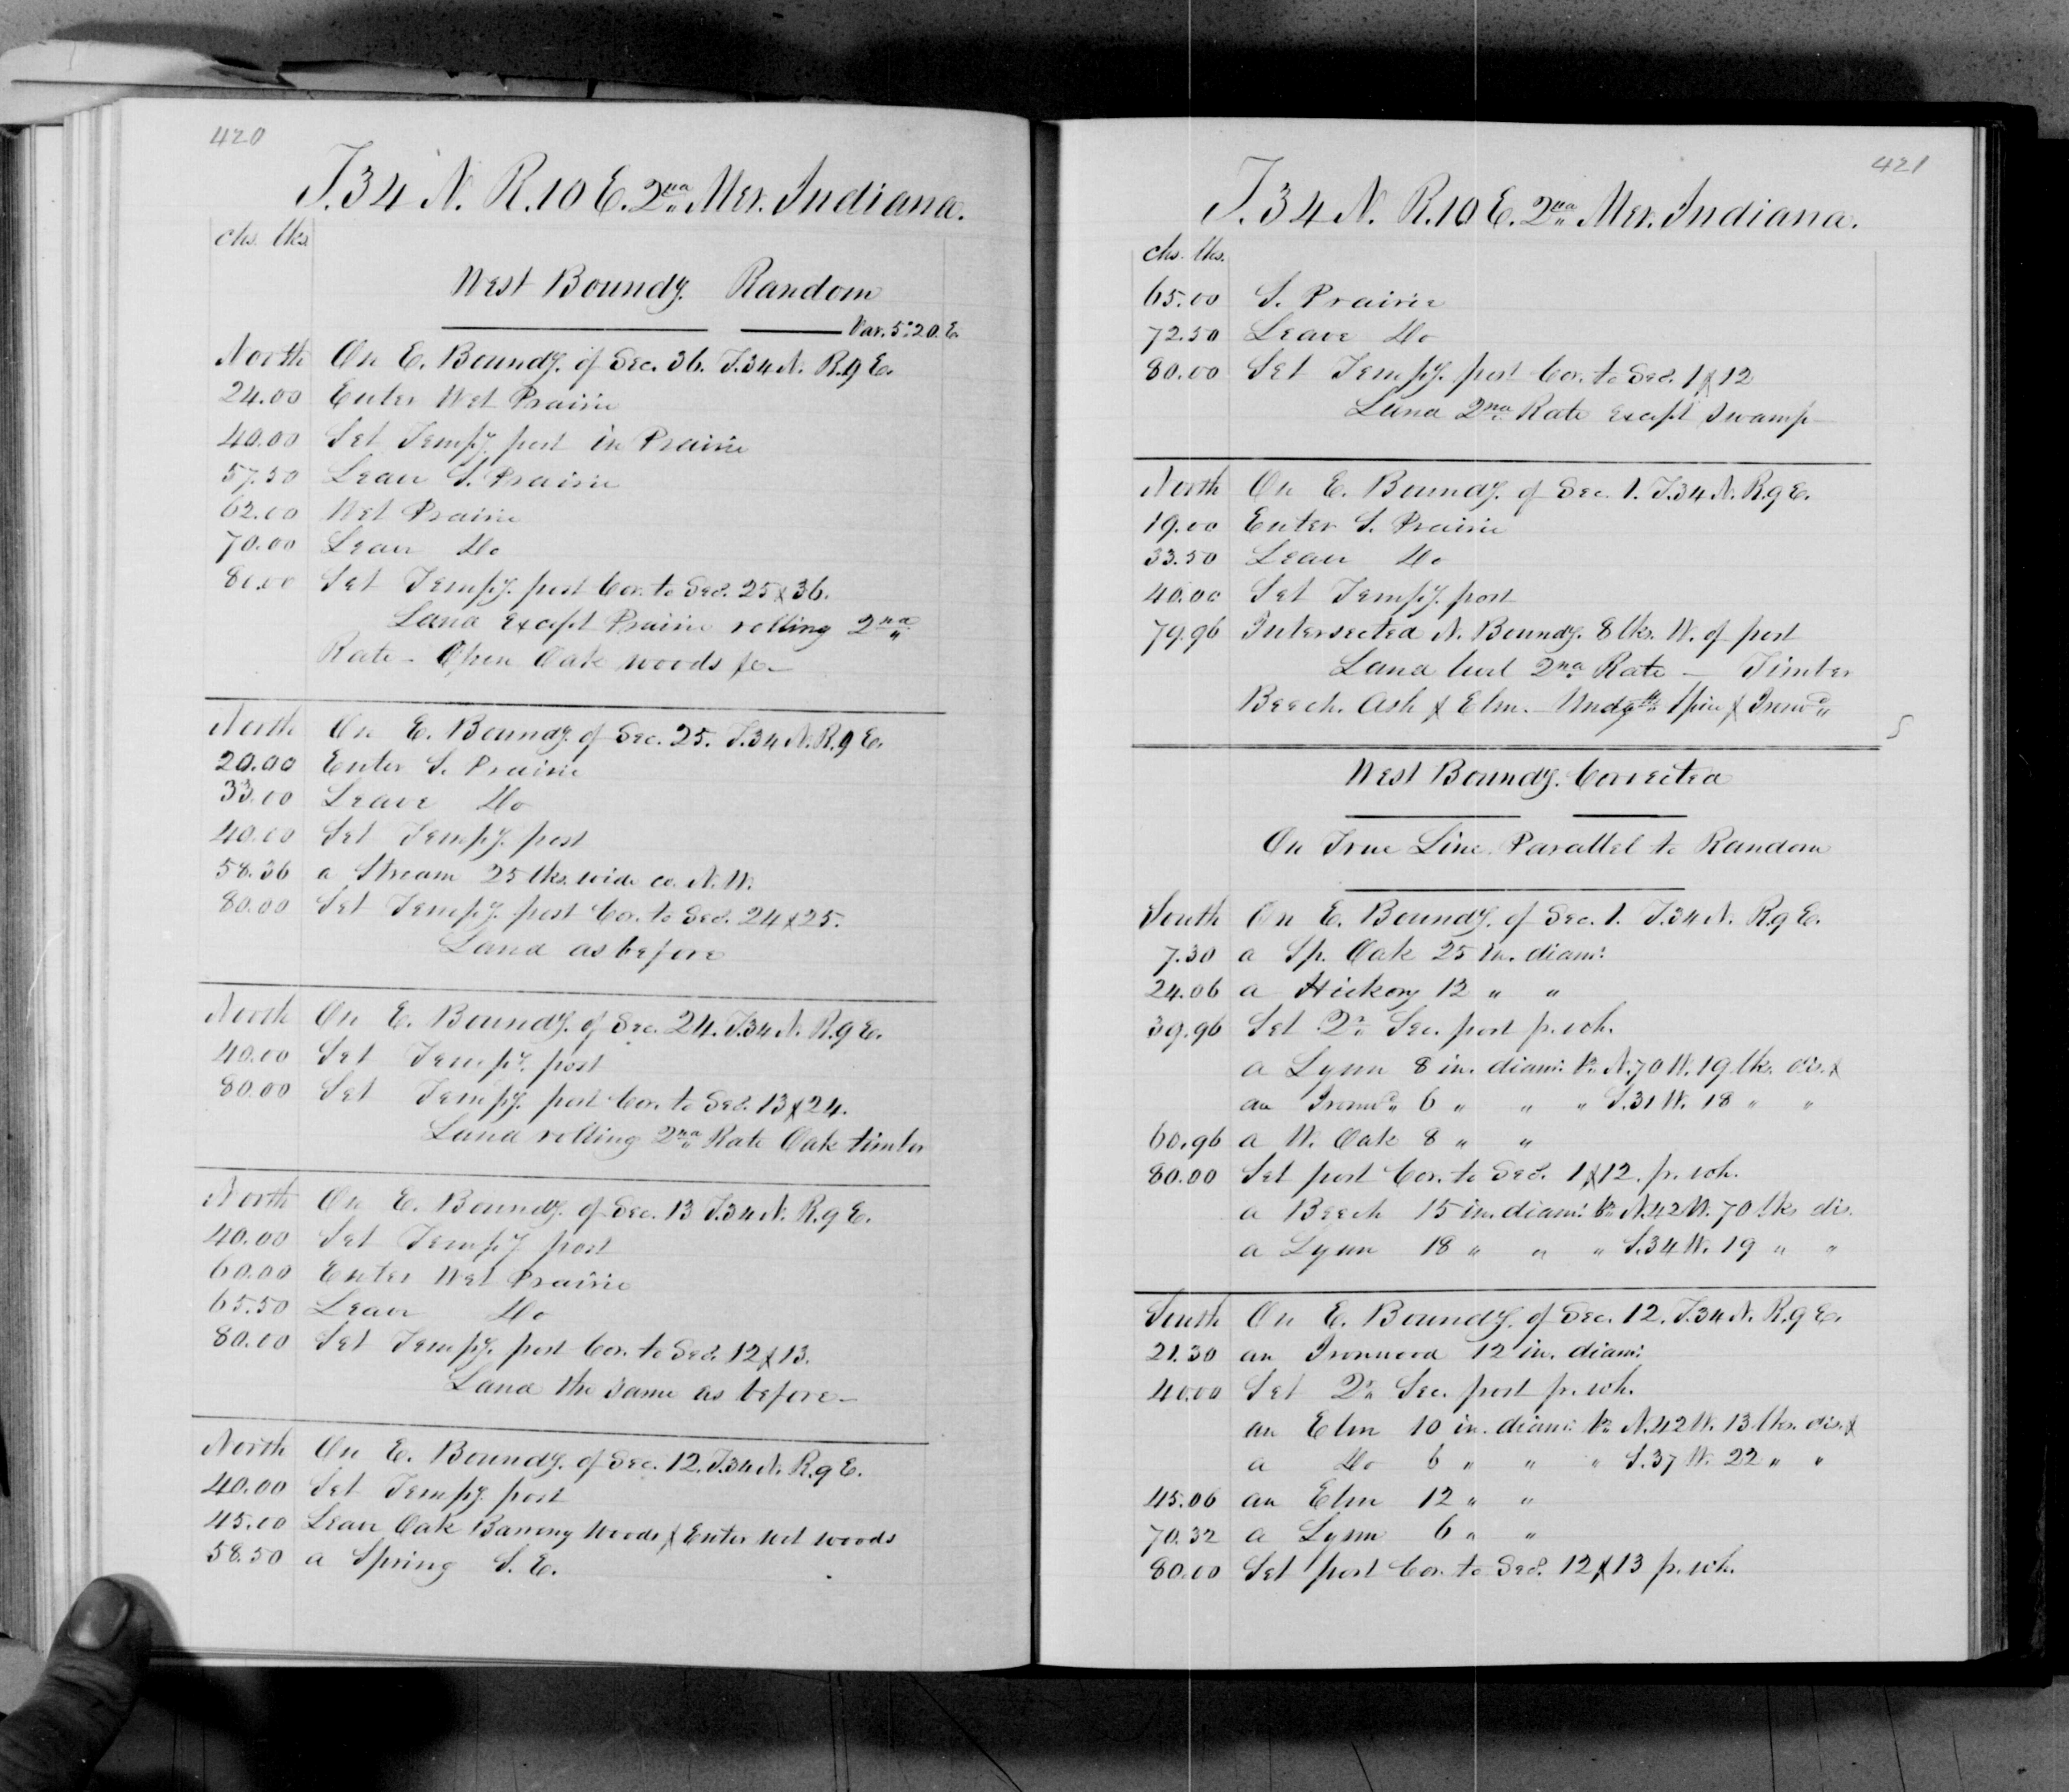 420
T. 34 N. R. 10 E. 2nd Mer. Indiana.
chs. lks.
West Boundy. Random
Var. 5° 20 E.
North On E. Boundy. of Sec. 36. T. 34 N. R. 9 E.
24.00 Enter Wet Prairie
40.00 Set Tempy. post in Prairie
57.50 Leave S. Prairie
62.00 Wet Prairie
70.00 Leave Do
80.00 Set Tempy. post Cor. to Secs. 25 & 36.
Land except Prairie rolling 2nd
Rate - Open Oak woods &c -
North On E. Boundy. of Sec. 25. T. 34 N. R. 9 E.
20.00 Enter S. Prairie
33.00 Leave Do
40.00 Set Tempy. post
58.36 a Stream 25 lks. wide co. N. W.
80.00 Set Tempy. post Cor. to Secs. 24 & 25.
Land as before
North On E. Boundy. of Sec. 24. T. 34 N. R. 9 E.
40.00 Set Tempy. post
80.00 Set Tempy. post Cor. to Secs. 13 & 24.
Land rolling 2nd Rate Oak timber
North On E. Boundy. of Sec. 13 T. 34 N. R. 9 E.
40.00 Set Tempy. post
60.00 Enter Wet Prairie
65.50 Leave Do
80.00 Set Tempy. post Cor. to Secs. 12 & 13.
Land the same as before -
North On E. Boundy. of Sec. 12. T. 34 N. R. 9 E.
40.00 Set Tempy. post
45.00 Leave Oak Barrony Woods & Enter wet woods
58.50 a Spring S. E.
421
T. 34 N. R. 10 E. 2nd Mer. Indiana.
chs. lks.
65.00 S. Prairie
72.50 Leave Do
80.00 Set Tempy. post Cor. to Secs. 1 & 12
Land 2nd Rate except Swamp
North On E. Boundy. of Sec. 1. T. 34 N. R. 9 E.
19.00 Enter S. Prairie
33.50 Leave Do
40.00 Set Tempy. post
79.96 Intersected N. Boundy. 8 lks. W. of post
Land level 2nd Rate - Timber
Beech. Ash & Elm. Undgth Spice & Ironwd
West Boundy. Corrected
On True Line Parallel to Random
South On E. Boundy. of Sec. 1. T. 34 N. R. 9 E.
7.30 a Sp. Oak 25 in. diam:
24.06 a Hickory 12 " "
39.96 Set Qr. Sec. post fr. wh.
a Lynn 8 in. diam: brs. N. 70 W. 19 lks. dis. &
an Ironwd. 6 " " " S. 31 W. 18 " "
60.96 a W. Oak 8 " "
80.00 Set post Cor. to Secs. 1 & 12. fr. wh.
a Beech 15 in. diam: brs. N. 42 W. 70 lks dis.
a Lynn 18 " " " S. 34 W. 19 " "
South On E. Boundy. of Sec. 12. T. 34 N. R. 9 E.
21.30 an Ironwood 12 in. diam:
40.00 Set Qr. Sec. post fr. wh.
an Elm 10 in. diam: brs. N. 42 W. 13 lks. dis. &
a Do 6 " " " S. 37 W. 22 " "
45.06 an Elm 12 " "
70.32 a Lynn 6 " "
80.00 Set post Cor. to Secs. 12 & 13 fr. wh.